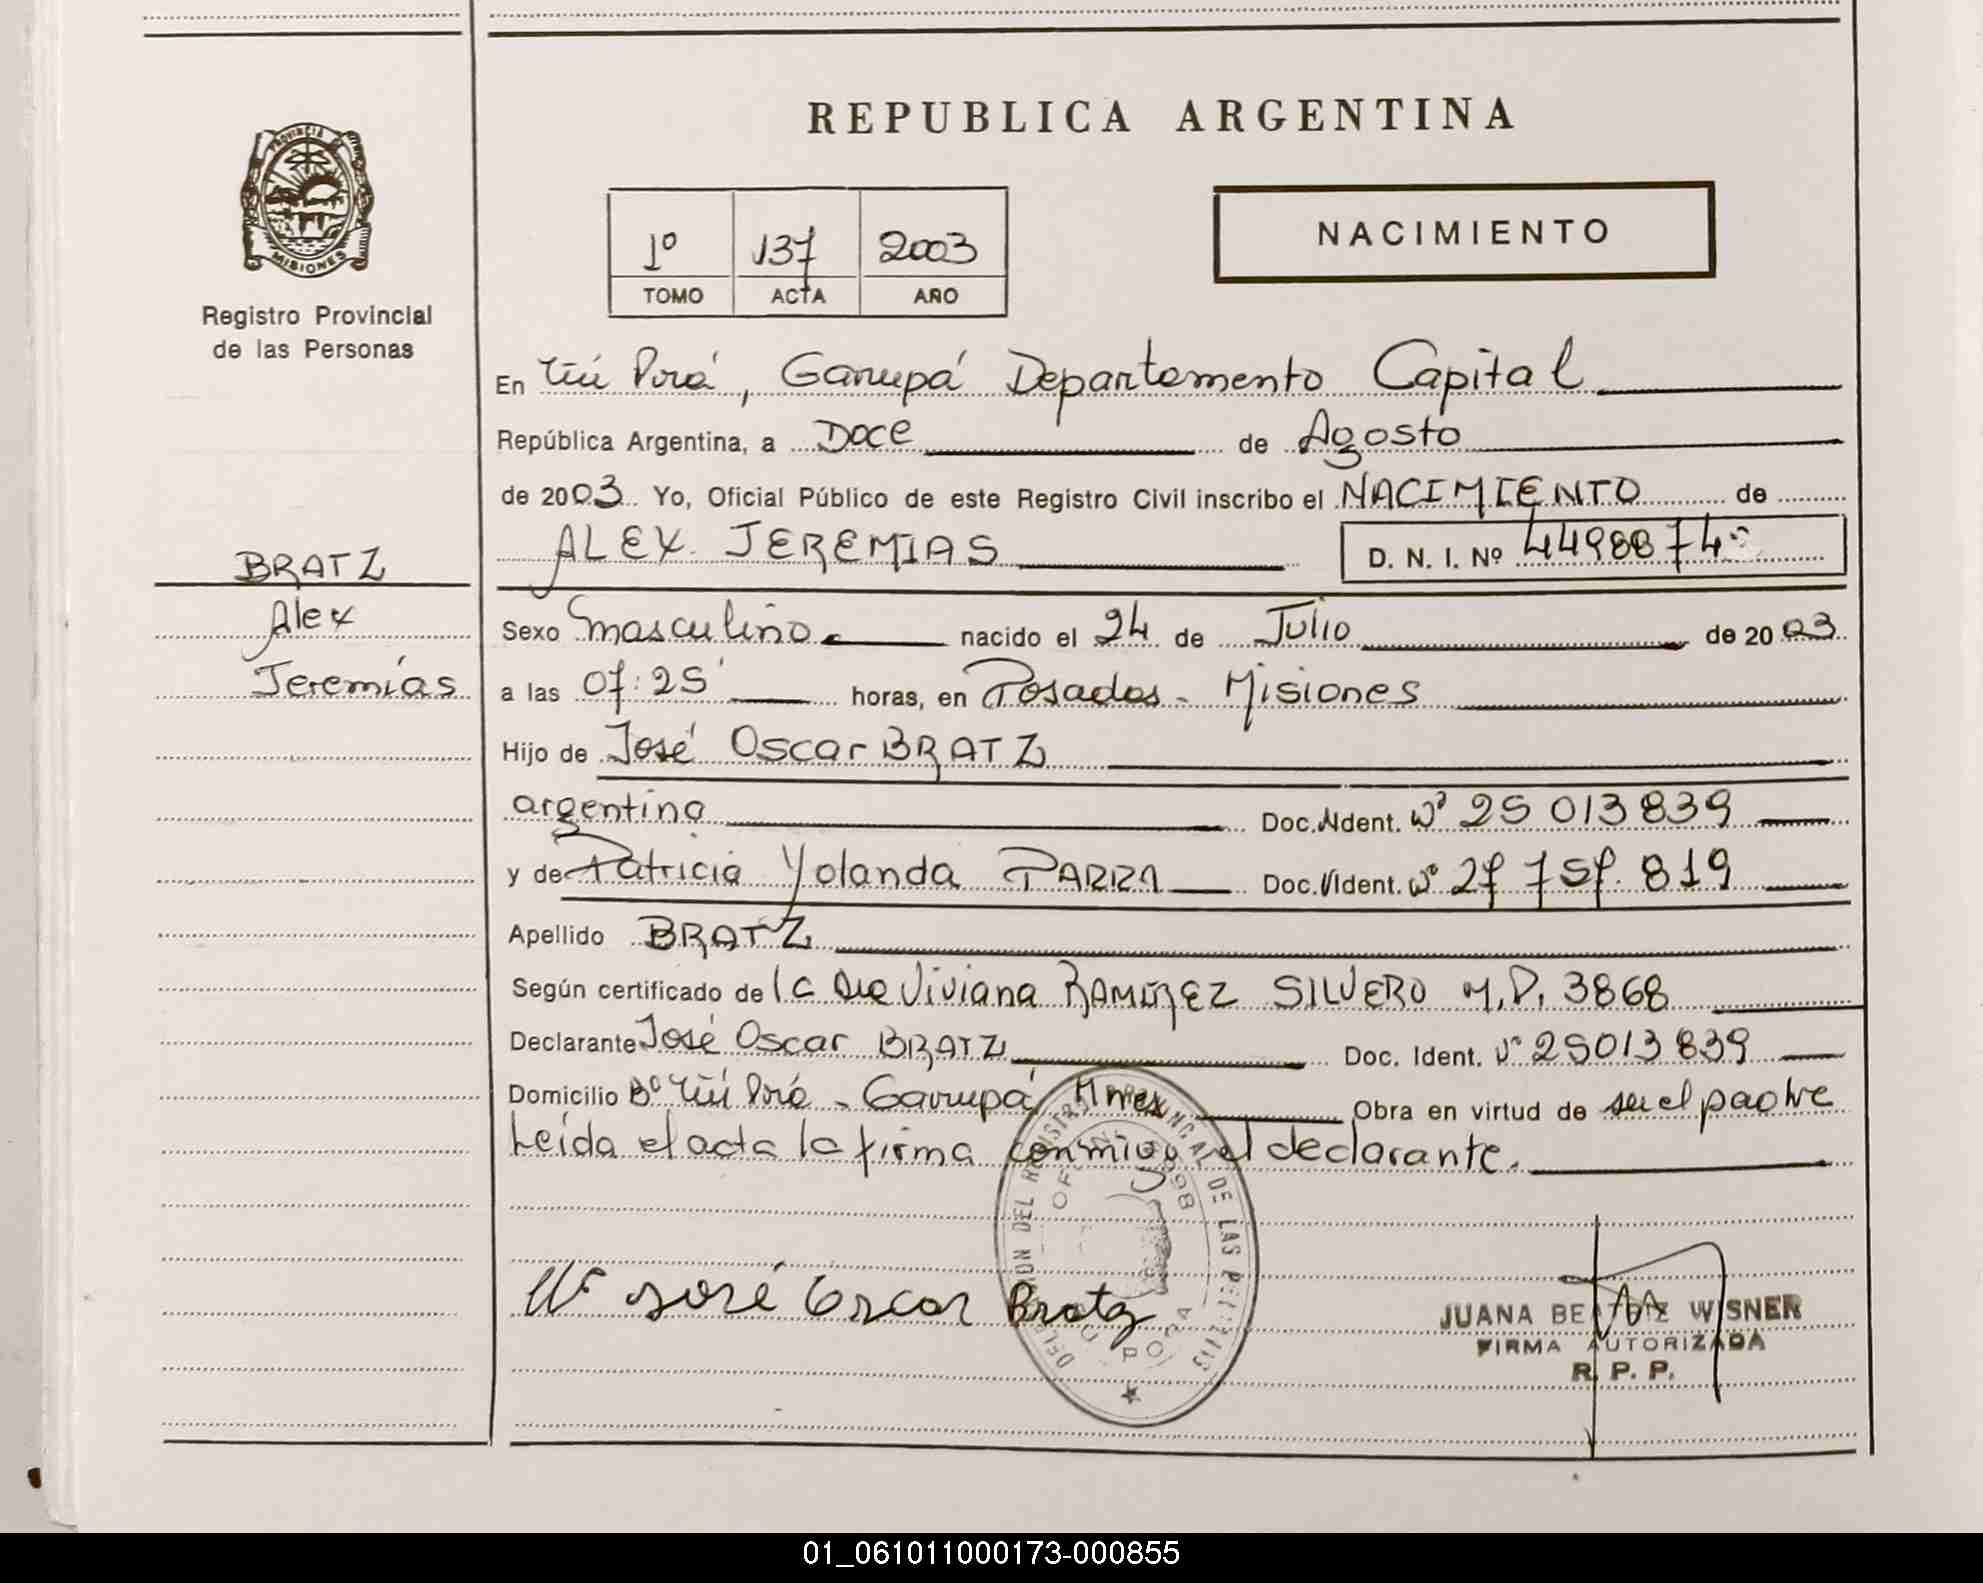 REPUBLICA ARGENTINA
PROVINCIA
MISIONES
Registro Provincial
de las Personas
1º 137 2003
TOMO ACTA AÑO
NACIMIENTO
En Ñú Porá, Garupá Departamento Capital
República Argentina, a Doce de Agosto
de 2003 Yo, Oficial Público de este Registro Civil inscribo el NACIMIENTO de
ALEX JEREMIAS
D. N. I. Nº 4498874
BRATZ
Alex
Jeremías
Sexo masculino nacido el 24 de Julio de 2003
a las 07:25' horas, en Posadas - Misiones
Hijo de José Oscar BRATZ
argentino Doc. Ident. Nº 25 013 839
y de Patricia Yolanda PARRA Doc. Ident. Nº 27 757. 819
Apellido BRATZ
Según certificado de la Viviana RAMIREZ SILVERO M.P. 3868
Declarante José Oscar BRATZ Doc. Ident. Nº 25013839
Domicilio Bº Ñú Porá - Garupá Mnes Obra en virtud de ser el padre
Leída el acta la firma conmigo el declarante.
José Oscar Bratz
JUANA BEATRIZ WISNER
FIRMA AUTORIZADA
R. P. P.
01_061011000173-000855